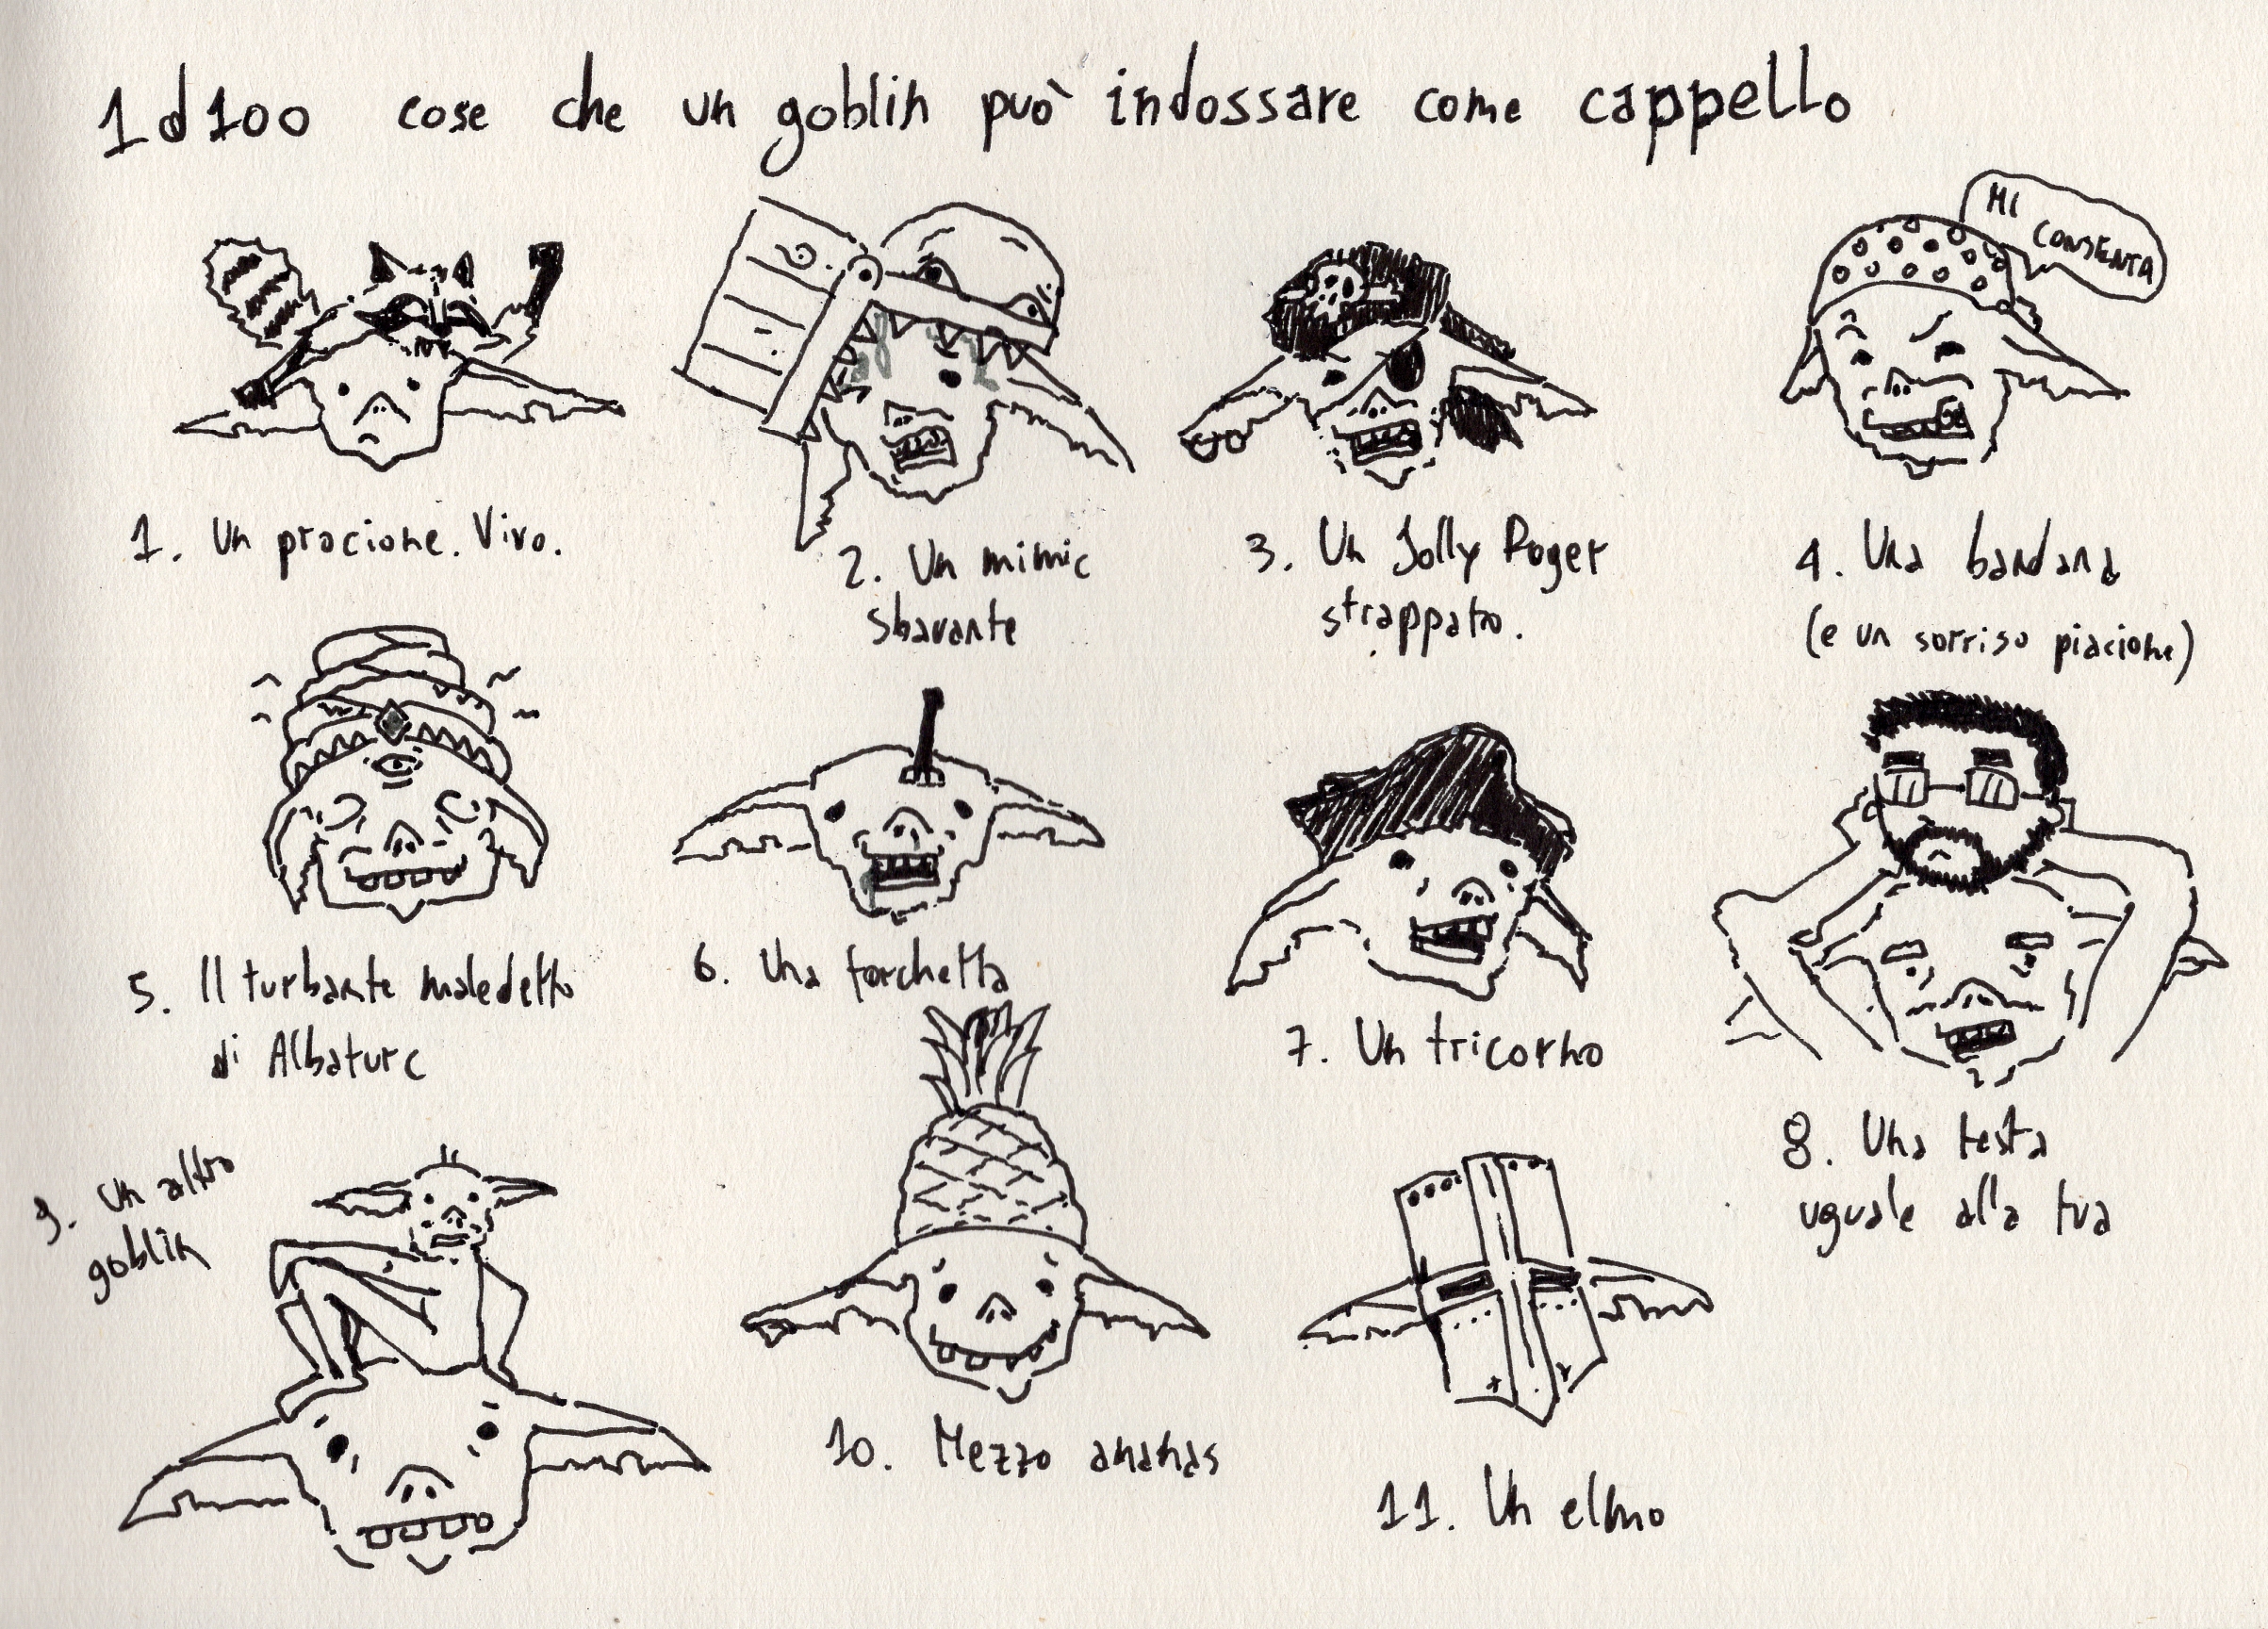 1d100 cose che un goblin può indossare come cappello
MI
CONSENTA
1. Un procione. Vivo.
2. Un mimic
sbavante
3. Un Jolly Roger
strappato.
4. Una bandana
(e un sorriso piacione)
5. Il turbante maledetto
di Albaturc
6. Una forchetta
7. Un tricorno
8. Una testa
uguale alla tua
9. un altro
goblin
10. Mezzo ananas
11. Un elmo